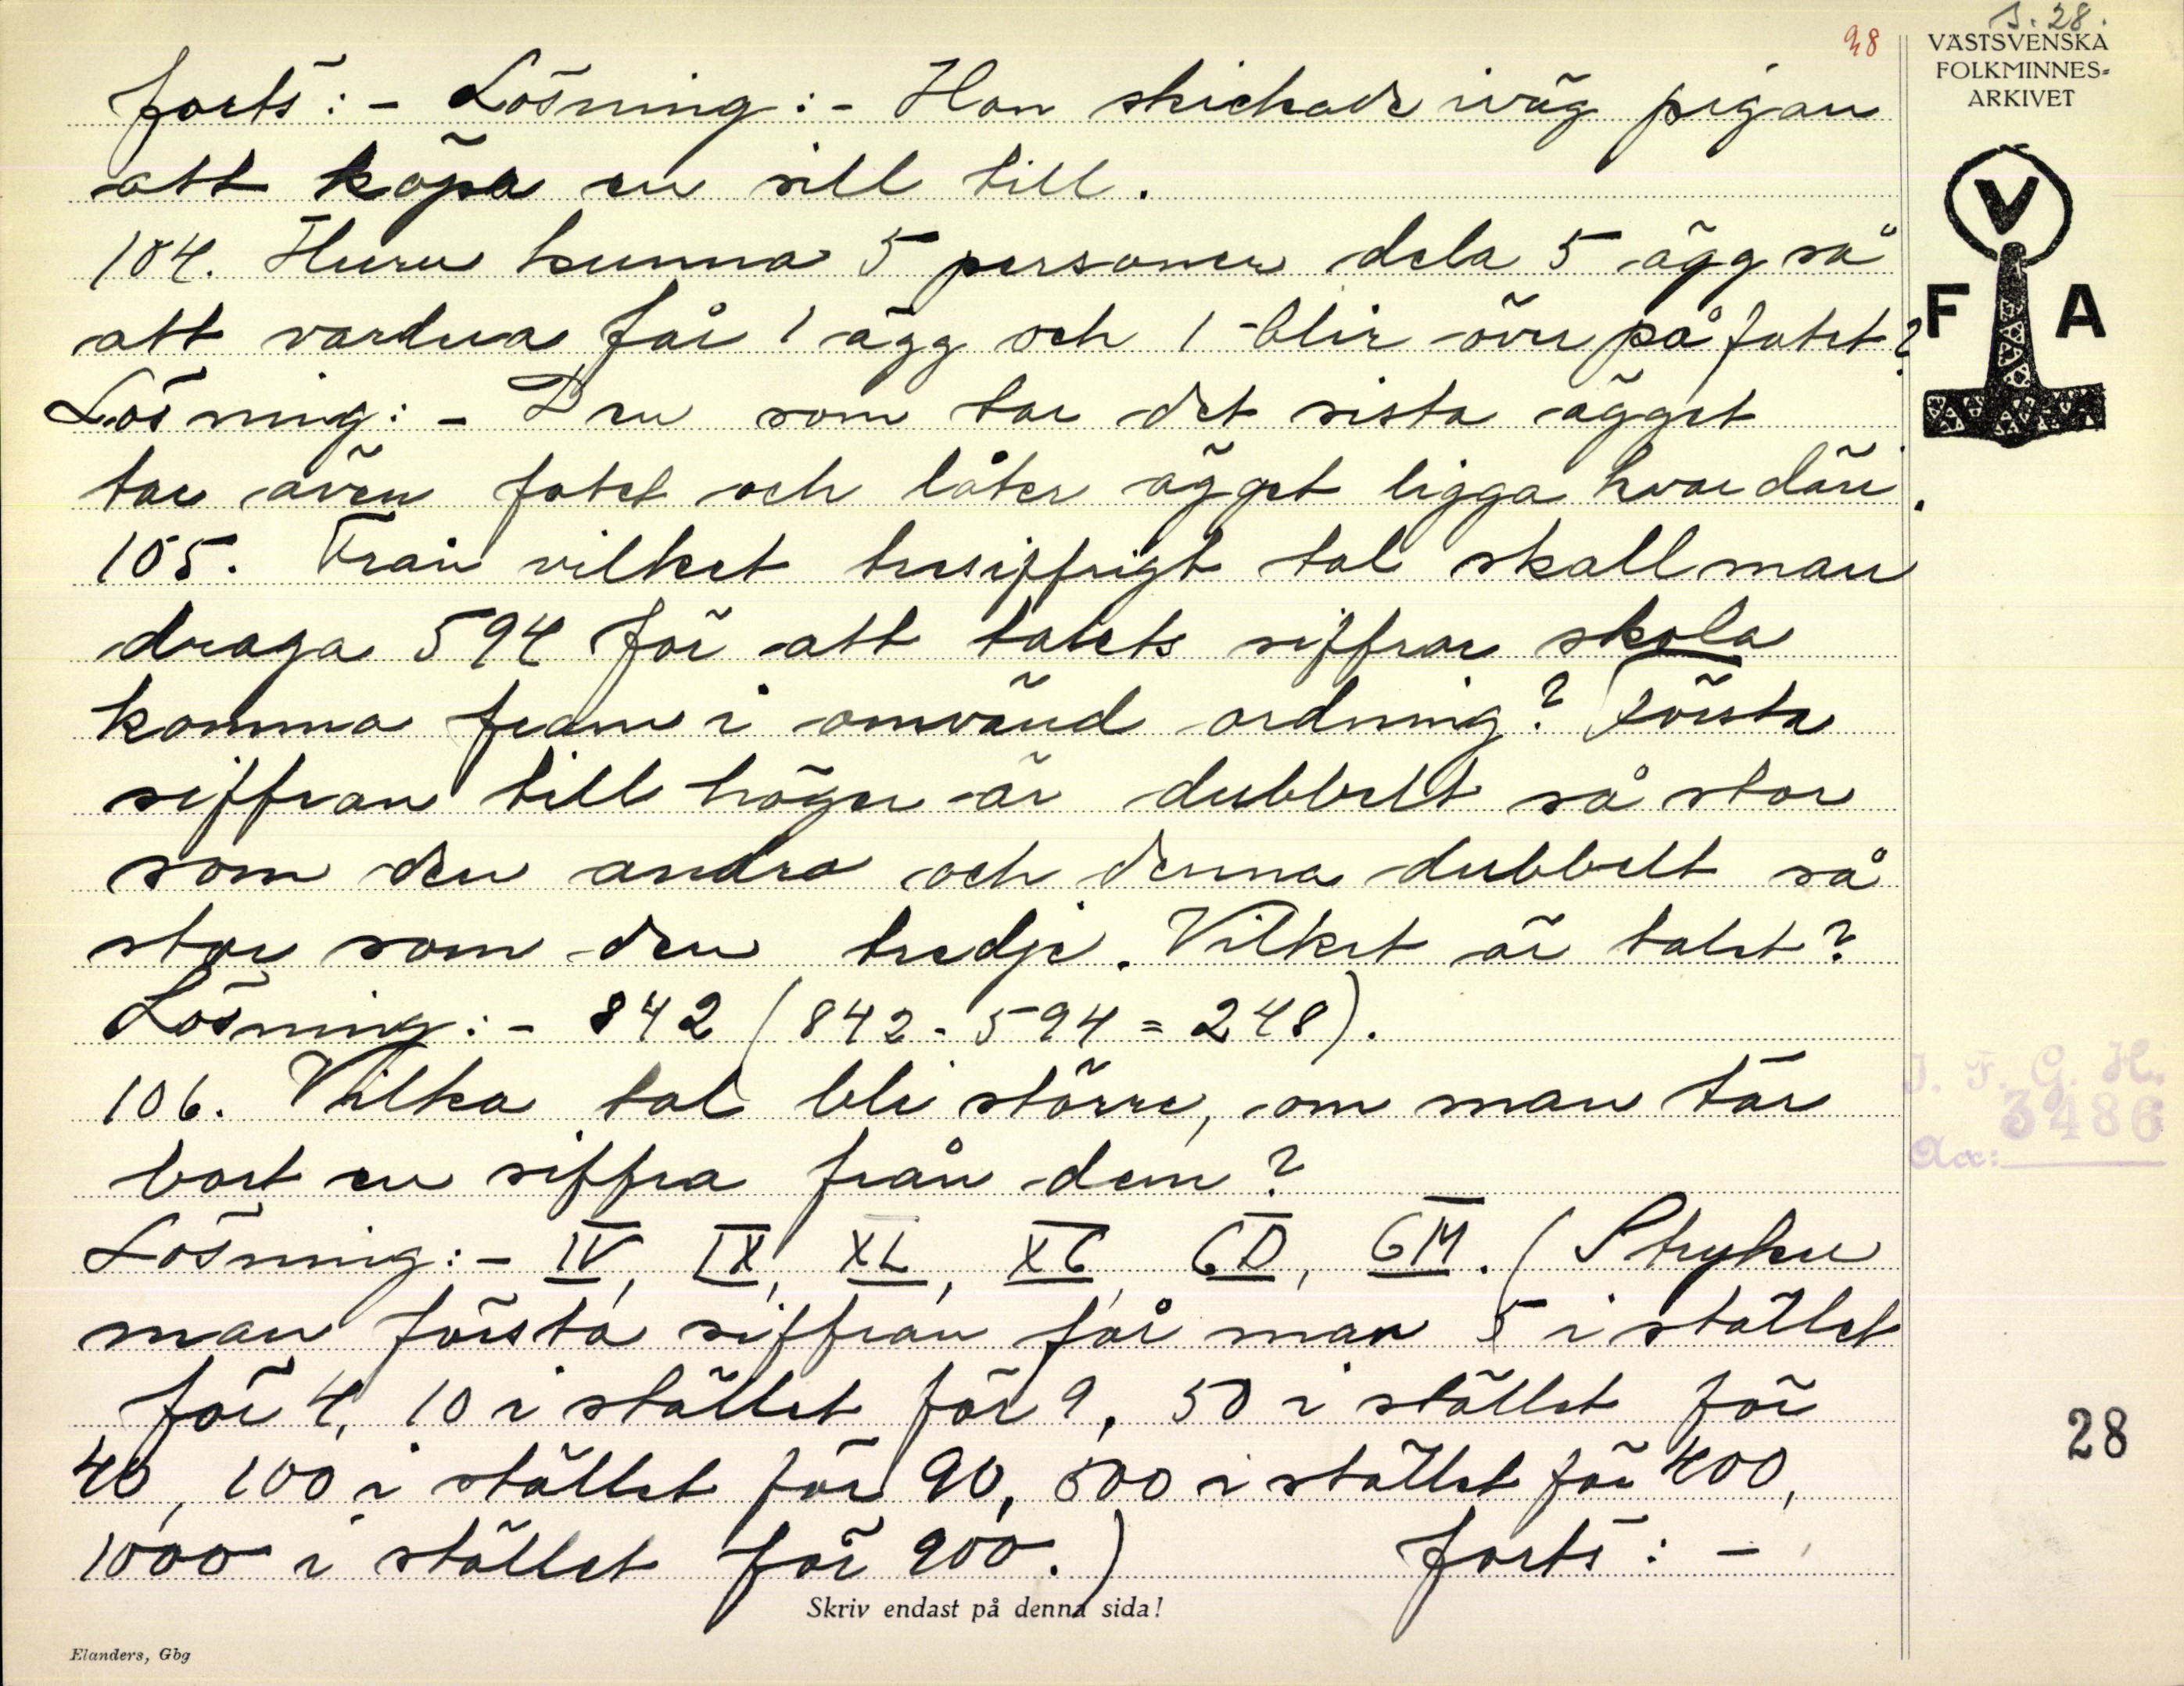 s. 28.
28
VÄSTSVENSKA
FOLKMINNES-
ARKIVET
V
F A
forts: - Lösning: - Hon skickade iväg pigan
att köpa en sill till.
104. Huru kunna 5 personer dela 5 ägg så
att vardera får 1 ägg och 1 blir över på fatet?
Lösning: - Den som tar det sista ägget
tar även fatet och låter ägget ligga kvar däri.
105. Från vilket tresiffrigt tal skall man
draga 594 för att talets siffror skola
komma fram i omvänd ordning? Första
siffran till höger är dubbelt så stor
som den andra och denna dubbelt så
stor som den tredje. Vilket är talet?
Lösning: - 842 (842 - 594 = 248).
106. Vilka tal bli större, om man tar
bort en siffra från dem?
Lösning: - IV, IX, XL, XC, CD, CM. (Stryker
man första siffran får man 5 i stället
för 4, 10 i stället för 9, 50 i stället för
40, 100 i stället för 90, 500 i stället för 400,
1000 i stället för 900.) forts: -
I. F. G. H.
3486
Acc:
28
Skriv endast på denna sida!
Elanders, Gbg